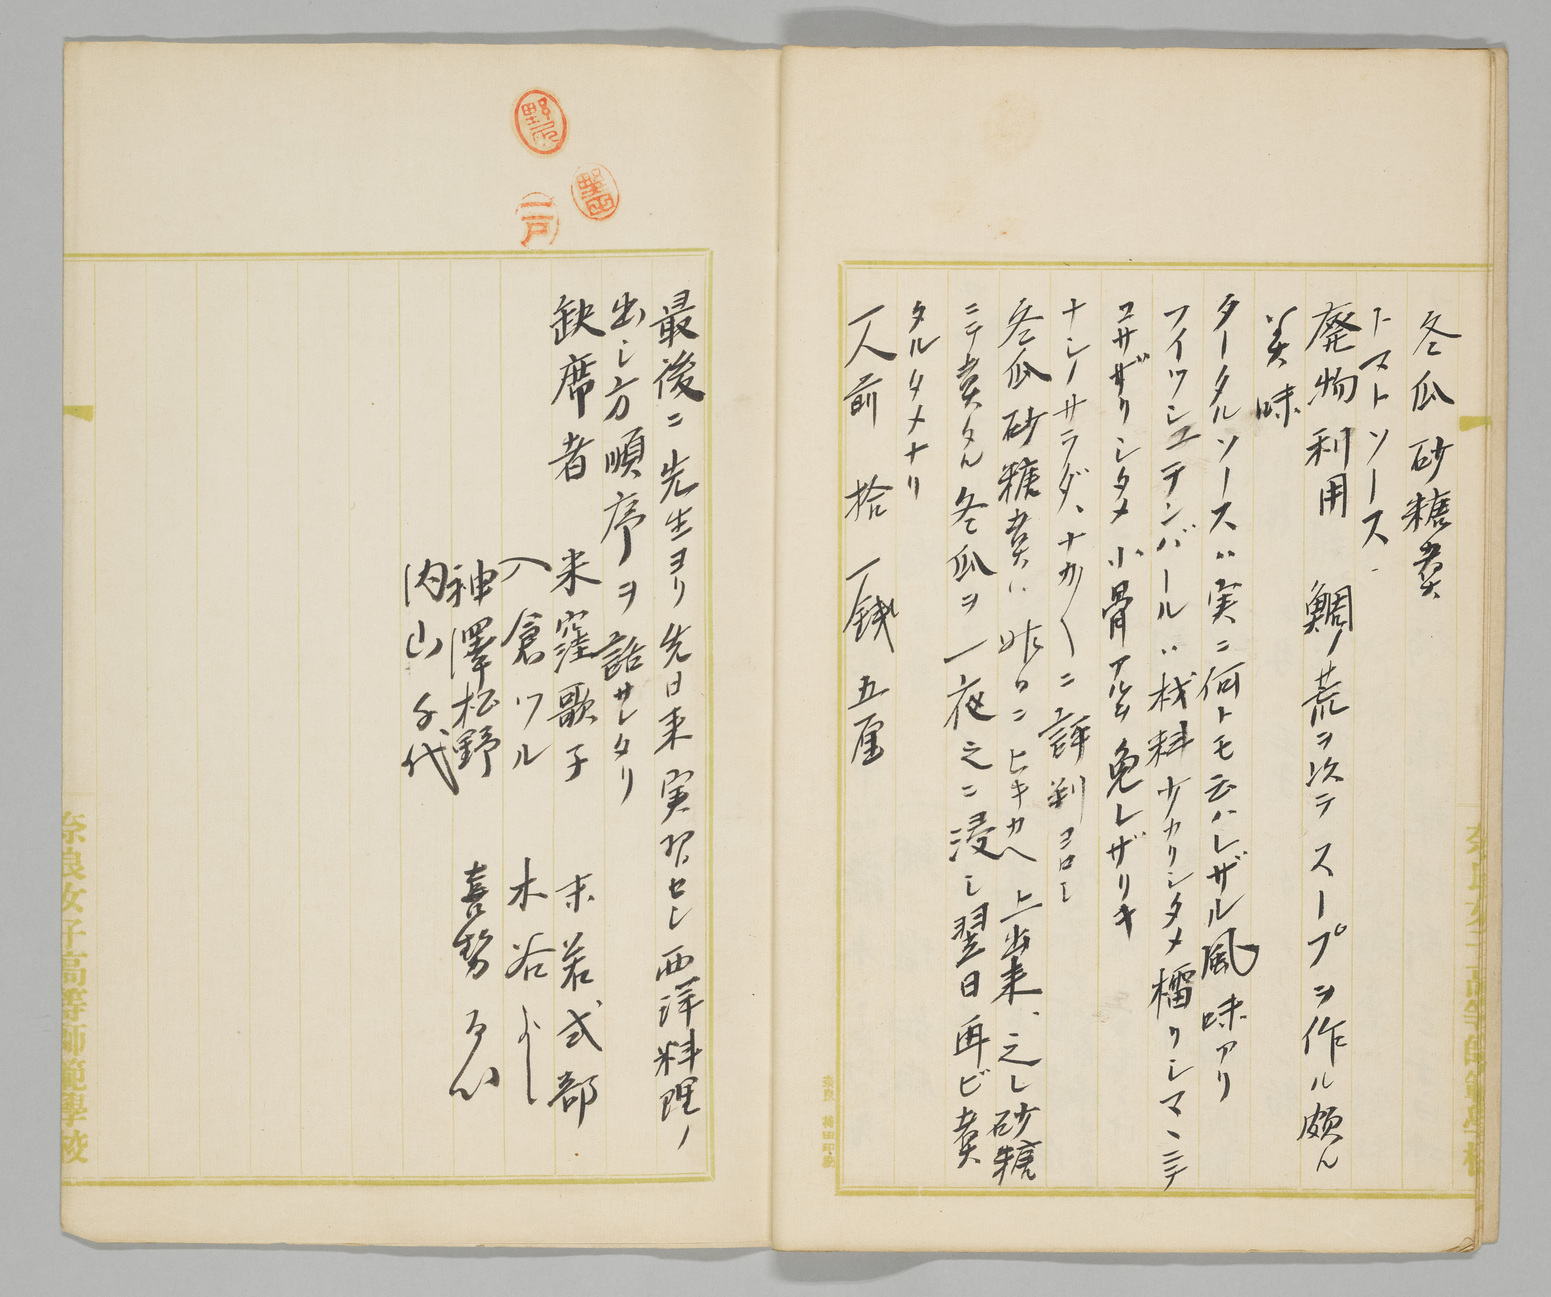 冬瓜砂糖煮
トマトソース
廃物利用 鯛ノ荒ヲ以テスープヲ作ル頗ル
美味
タータルソースハ実ニ何トモ云ハレザル風味アリ
フイツシユチンバールハ材料少カリシタメ擂リシマヽニテ
コサザリシタメ小骨アルヲ免レザリキ
ナシノサラダ、ナカ〱ニ評判ヨロシ
冬瓜砂糖煮ハ昨日ニヒキカヘ上出来、之レ砂糖
ニテ煮タル冬瓜ヲ一夜之ニ浸シ翌日再ビ煮
タルタメナリ
一人前 拾一銭五厘
最後ニ先生ヨリ先日来実習セシ西洋料理ノ
出シ方順序ヲ話サレタリ
缺席者 米窪歌子 末若式部
入倉ツル 木谷よし
神澤松野 喜勢るい
内山千代
野田
二戸
奈良女子高等師範學校
奈良女子高等師範學校